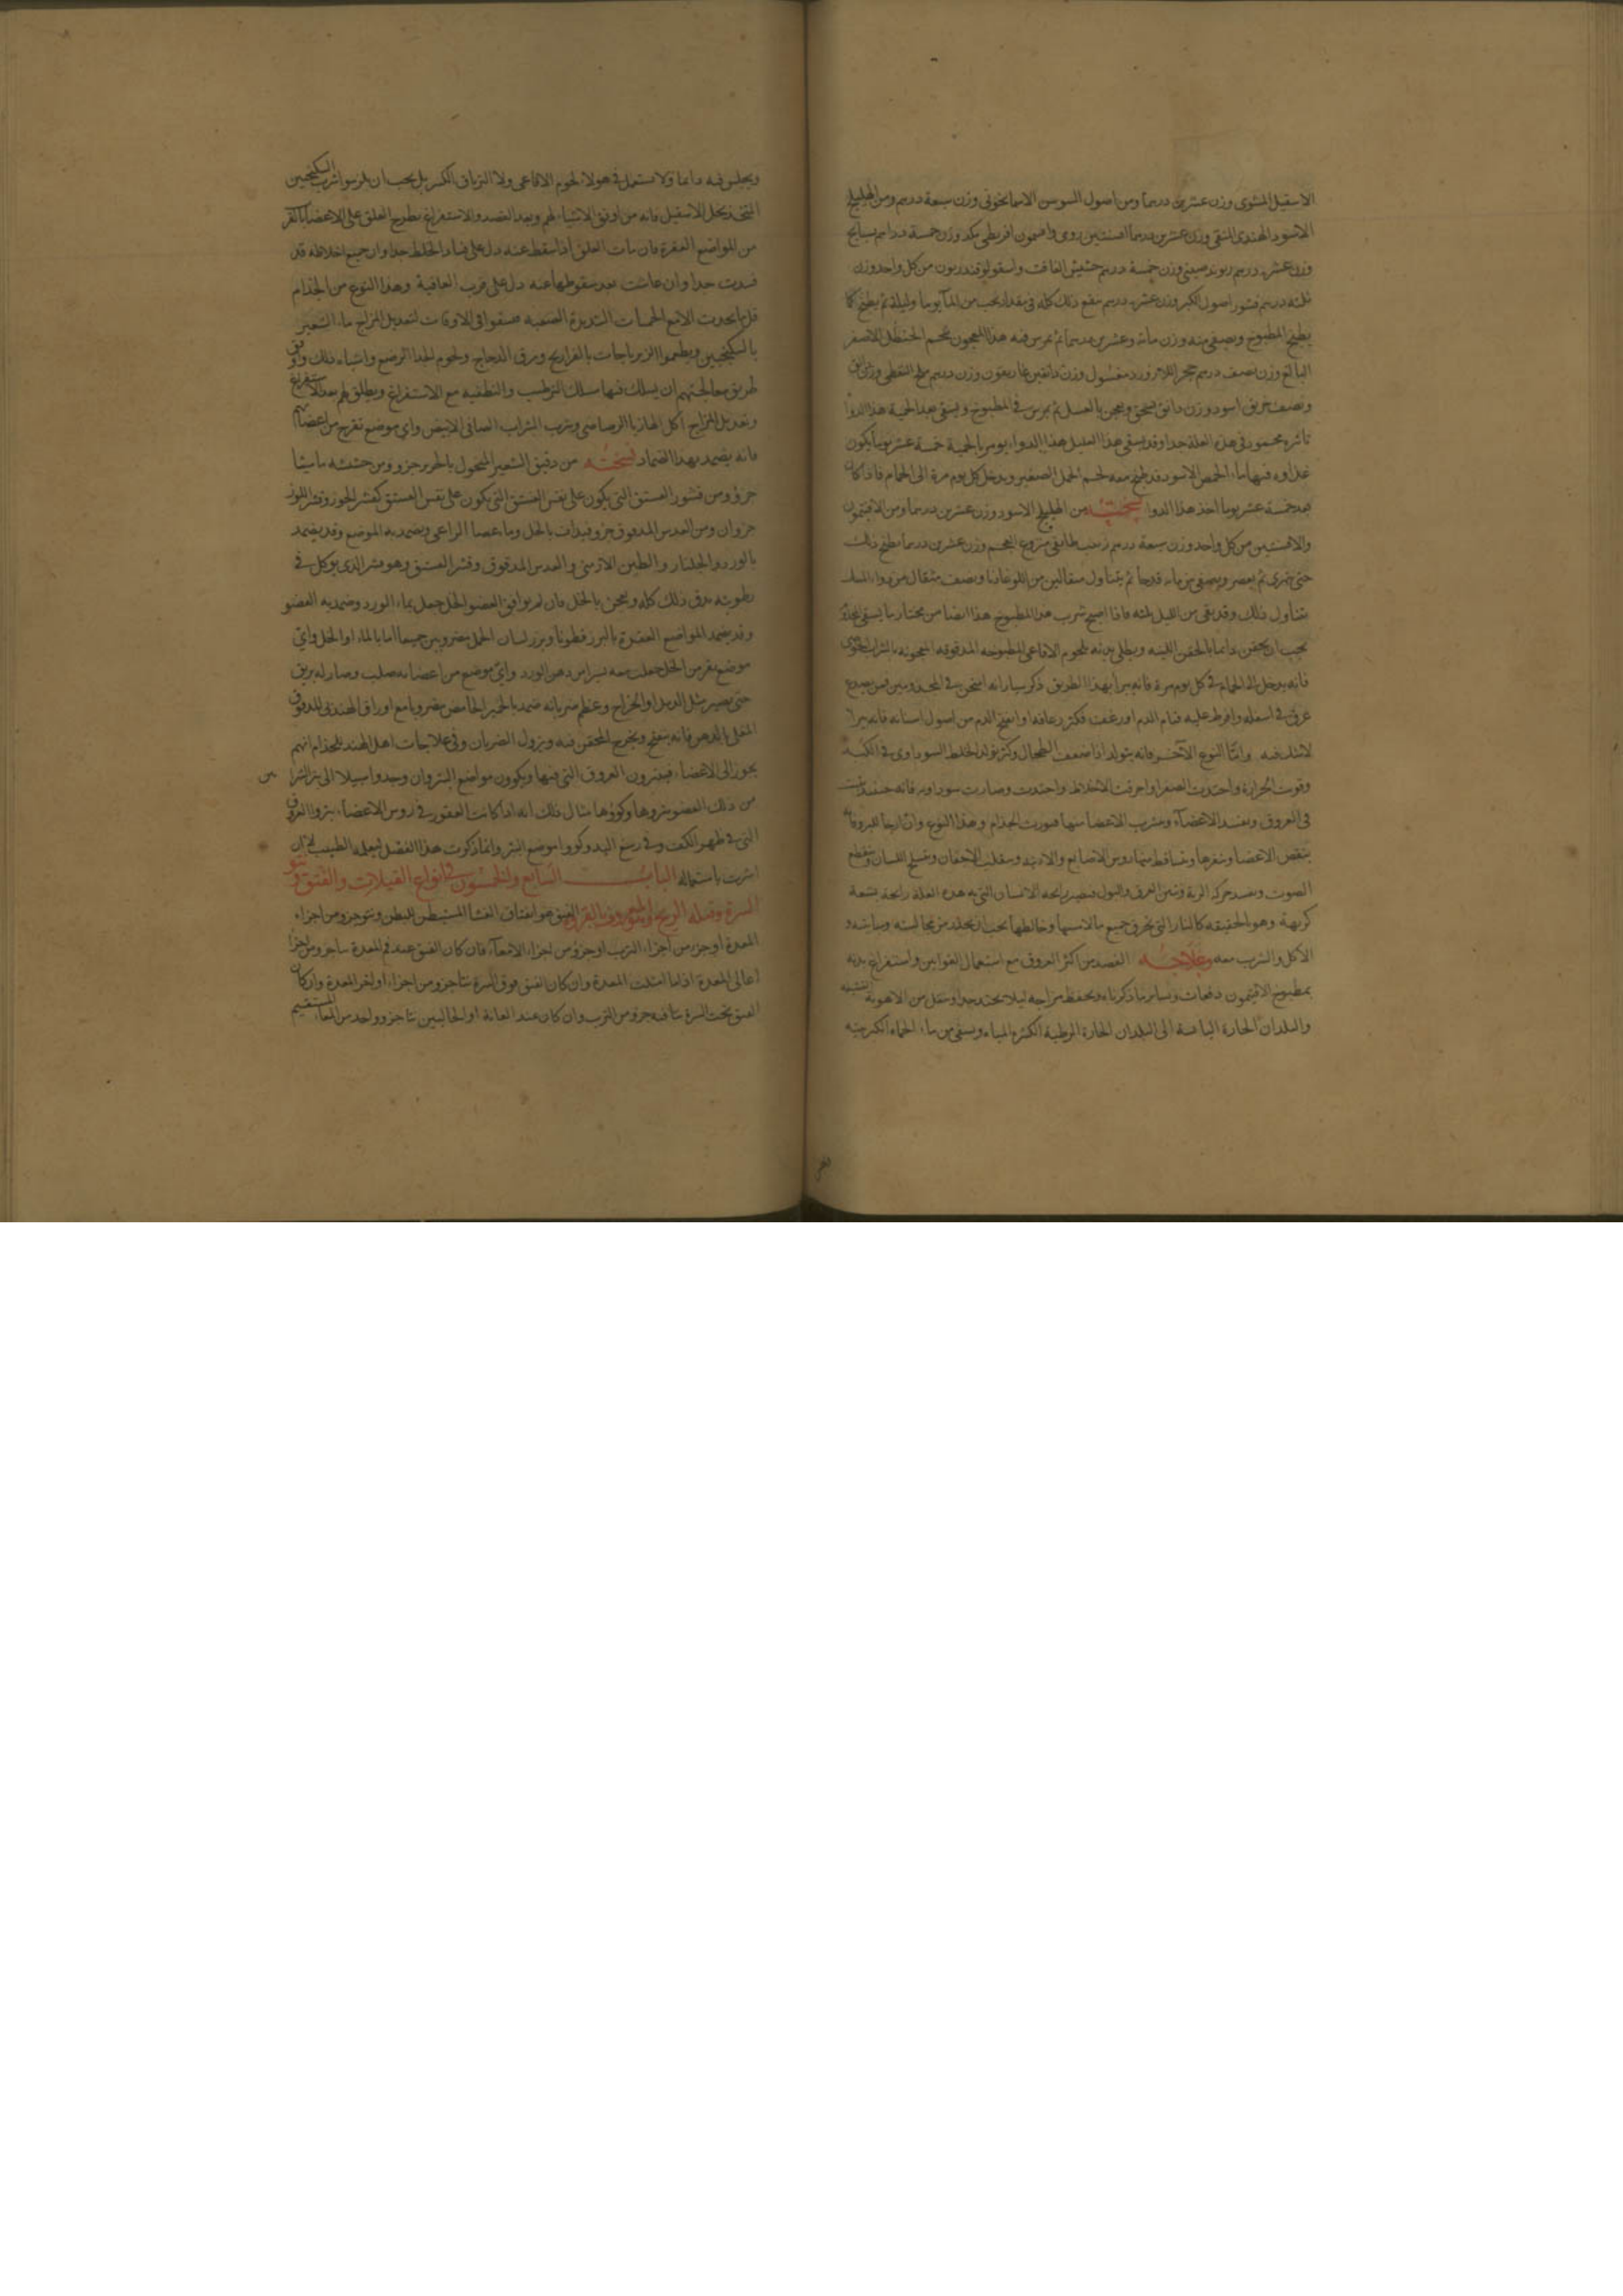 الاسقيل المشوى وزن عشرين درهما ومن اصول السوس الاسمانجونى وزن سبعة درهم ومن الهليلج
الاسود الهندى المنقى وزن عشرين درهما افسنتين رومى وافتيمون اقريطى مكد وزن خمسة دراهم بسبايج
وزن عشرة درهم ريوند صينى وزن خمسة درهم حشيش الغافت واسقولوقندريون من كل واحد وزن
ثلثه درهم قشور اصول الكبر وزن عشرة درهم ينقع ذلك كله فى مقدار يجب من المآ يوما وليلة ثم يطبخ كما
يطبخ المطبوخ ويصفى منه وزن مائة وعشرين درهما ثم يمرس فيه هذا المعجون شحم الحنظل الاصفر
البالغ وزن نصف درهم حجر اللازورد مغسول وزن دانقين غاريقون وزن درهم ملح النفطى وزن دانق
ونصف خربق اسود وزن دانق يسحق ويعجن بالعسل ثم يمرس فى المطبوخ ويسقى بعد الحمية هذا الدوآ
تاثيره محمود فى هذه العلة جدا وقد يسقى هذا العليل هذا الدواء يومر بالحمية خمسة عشر يوما يكون
غذاوه فيها ماء الحمص الاسود قد طبخ معه لحم الحمل الصغير ويدخل كل يوم مرة الى الحمام فاذا كان
بعد خمسة عشر يوما اخذ هذا الدوا نسخته من الهليلج الاسود وزن عشرين درهما ومن الافتيمون
والافسنتين من كل واحد وزن سبعة درهم زبيب طائفى منزوع العجم وزن عشرين درهما يطبخ ذلك
حتى يتهرى ثم يعصر ويصفى من مائه قدحا ثم يتناول مثقالين من اللوغاذيا ونصف مثقال من دواء المسك
يتناول ذلك وقد بقى من الليل ثلثه فاذا اصبح شرب هذا المطبوخ هذا ايضا من مختار ما يسقى
يجب ان يحقن دائما بالحقن اللينه ويطلى بدنه بلحوم الافاعى المطبوخه المدقوقه المعجونه بالشراب
فانه يدخل الى الحمام فى كل يوم مرة فانه يبرا بهذا الطريق
عرق فى اسفله وافرط عليه قيام الدم او رعف فكثر رعافه او انفتح الدم من اصول اسنانه فانه يبرا
لا شك فيه واما النوع الآخر فانه يتولد اذا ضعف الطحال وكثر تولد الخلط السوداوى فى الكبد
وقويت الحرارة واحتدت الصفرا واحرقت الاخلاط واحتدت وصارت سوداويه فانه حينئذ
فى العروق وتفسد الاعضآء وتشرب الاعضا منها فيورث الجذام وهذا النوع
ينقص الاعضا ويغيرها ويتساقط منها روس الاصابع والاذنه وينقلب الاجفان
الصوت ويفسد حركه الرية وينتن العرق والبول فيصير رايحه الانسان التى به هذه العلة رايحة بشعة
كريهة وهو بالحقيقه كالنار التى تحرق جميع ما لامسها وخالطها يجب ان يحذر من مجالسته
الاكل والشرب معه وعلاجه الفصد من اكثر العروق مع استعمال القوانين واستفراغ بدنه
بمطبوخ الافتيمون دفعات وبساير ما ذكرناه ويحفظ مزاجه ليلا يحتد جدا وينقل من الاهوية
والبلدان الحارة اليابسة الى البلدان الحارة الرطبة الكثيرة المياه ويسقى من ماء الحماه الكبريتيه
ويجلس فيه دايما ولا يستعمل فى هولاء لحوم الافاعى ولا الترياق الكبير بل يجب ان يلزموا شرب السكنجبين
المتخذ بخل الاسقيل فانه من اوفق الاشياء لهم وبعد الفصد والاستفراغ يطرح العلق على الاعضا
من المواضع العقرة فان مات العلق اذا سقط عنه دل على فساد الخلط جدا وان جميع اخلاطه قد
فسدت جدا وان عاشت بعد سقوطها عنه دل على قرب العافية وهذا النوع من الجذام
قل ما يحدث الا مع الحميات الشديدة الصعبه فيسقوا فى الاوقات لتعديل المزاج ماء الشعير
بالسكنجبين ويطعموا الزيرباجات بالفراريج ومرق الدجاج ولحوم الجدا الرضع واشباه ذلك
طريق معالجتهم ان يسلك فيها مسلك الترطيب والتطفيه مع الاستفراغ ويطلق لهم بعد الاستفراغ
وتعديل المزاج اكل الهازبا الرصاصى وشرب الشراب الصافى الابيض واى موضع تقرح من اعضائهم
فانه يضمد بهذا الضماد نسخته من دقيق الشعير المنخول بالحرير جزو ومن حشيشه ماميثا
جزؤ ومن قشور الفستق التى يكون على نفس الفستق كقشر الجوز وقشر اللوز
جزوان ومن العدس المدقوق جزو فيداف بالخل وماء عصا الراعى ويضمد به الموضع وقد يضمد
بالورد والجلنار والطين الارمنى والعدس المدقوق وقشر الفستق وهو قشر الذى يوكل فى
رطوبته يدق ذلك كله ويعجن بالخل فان لم يوافق العضو الخل جعل بماء الورد وضمد به العضو
وقد يضمد المواضع العقرة بالبزر قطونا وبزر لسان الحمل مضروبين جميعا اما بالماء او الخل واى
موضع نفر من الخل جعلت معه يسيرا من دهن الورد واى موضع من اعضائه صلب وصار له بريق
حتى يصير مثل الدبيلة او الخراج وعظم ضربانه ضمد بالخمير الحامض مضروبا مع اوراق الهندبا المدقوق
المغلى بالدهن فانه ينفتح ويخرج المحتقن فيه ويزول الضربان وفى علاجات اهل الهند للجذام انهم
يجوز الى الاعضاء فيبترون العروق التى فيها ويكوون مواضع البتر وان وجدوا سبيلا الى بتر
من ذلك العضو بتروها وكووها مثال ذلك انه اذا كانت العقور فى روس الاعضاء بتروا العروق
التى فى ظهر الكف وفى رسغ اليد وكووا موضع البتر وانما ذكرت هذا الفصل ليعلمه الطبيب
اشرت باستعماله الباب السابع والخمسون فى انواع القيلات والفتق ونتو
السرة وقيله الريح والمعروف بالقرو الفتق هو انفتاق الغشا المستبطن للبطن ونتو جزو من اجزاء
المعدة او جزء من اجزاء الثرب او جزؤ من اجزاء الامعآء فان كان الفتق عند فم المعدة نتا جزو من اجزا
اعالى المعدة اذا ما امتلت المعدة وان كان الفتق فوق السرة نتا جزو من اجزاء اواخر المعدة وان كان
الفتق تحت السرة نتا فيه جزؤ من الثرب وان كان عند العانة او الحالبين نتا جزو واحد من المعا المستقيم